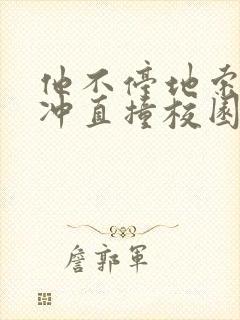 他不停地索
冲直撞校园
詹郭军